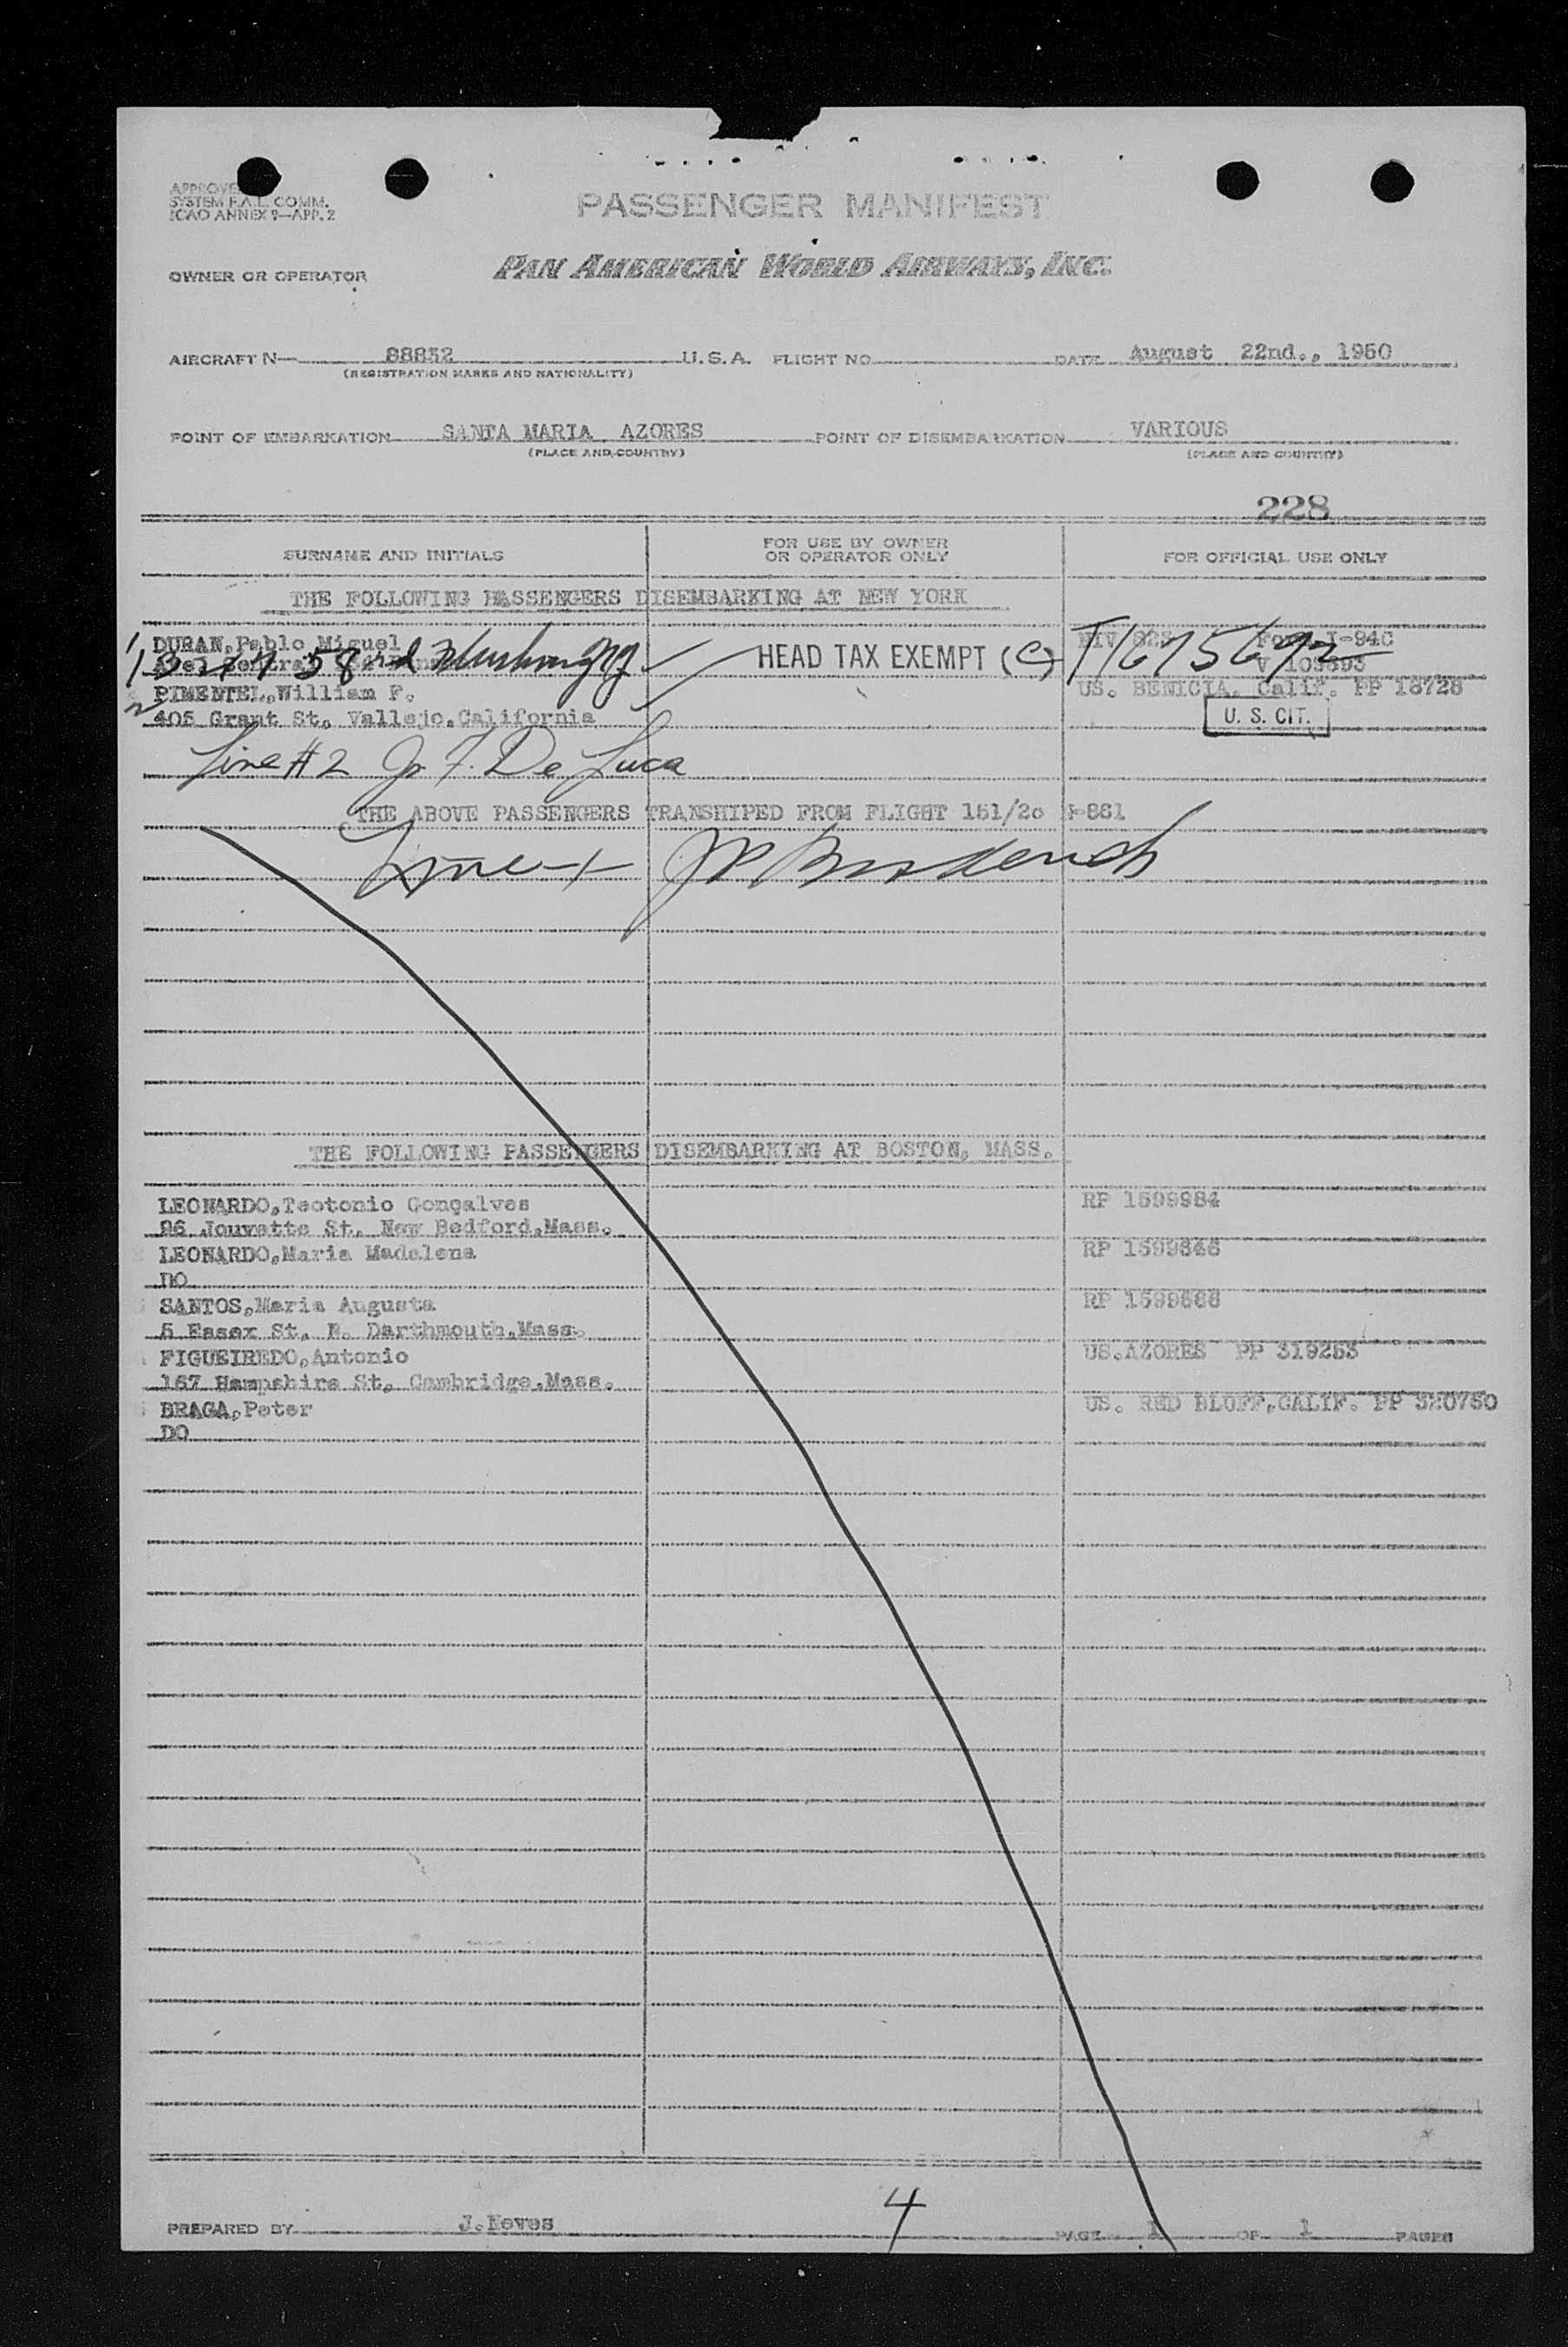 SYSTEM F.A.L. COMM.
ICAO ANNEX 9—APP. 2
PASSENGER MANIFEST
OWNER OR OPERATOR
PAN AMERICAN WORLD AIRWAYS, INC.
AIRCRAFT N— 88852 U.S.A. FLIGHT NO. DATE August 22nd., 1950
(REGISTRATION MARKS AND NATIONALITY)
POINT OF EMBARKATION SANTA MARIA, AZORES POINT OF DISEMBARKATION VARIOUS
(PLACE AND COUNTRY) (PLACE AND COUNTRY)
228
SURNAME AND INITIALS FOR USE BY OWNER OR OPERATOR ONLY FOR OFFICIAL USE ONLY
THE FOLLOWING PASSENGERS DISEMBARKING AT NEW YORK
1 DURAN, Pablo Miguel I-94C
HEAD TAX EXEMPT (C)
2 PIMENTEL, William F. US. BENICIA, Calif. PP 18728
405 Grant St. Vallejo, California U. S. CIT.
Line #2 De Luca
THE ABOVE PASSENGERS TRANSHIPED FROM FLIGHT 151/20
THE FOLLOWING PASSENGERS DISEMBARKING AT BOSTON, MASS.
LEONARDO, Teotonio Gonçalves RP 1599984
96 Jouvette St. New Bedford, Mass.
LEONARDO, Maria Madalena RP
DO
SANTOS, Maria Augusta RP
5 Essex St. Darthmouth, Mass.
FIGUEIREDO, Antonio US. AZORES PP 319253
167 Hampshire St. Cambridge, Mass.
BRAGA, Peter US. RED BLUFF, CALIF. PP 320750
DO
4
PREPARED BY J. Neves PAGE 1 OF 1 PAGES